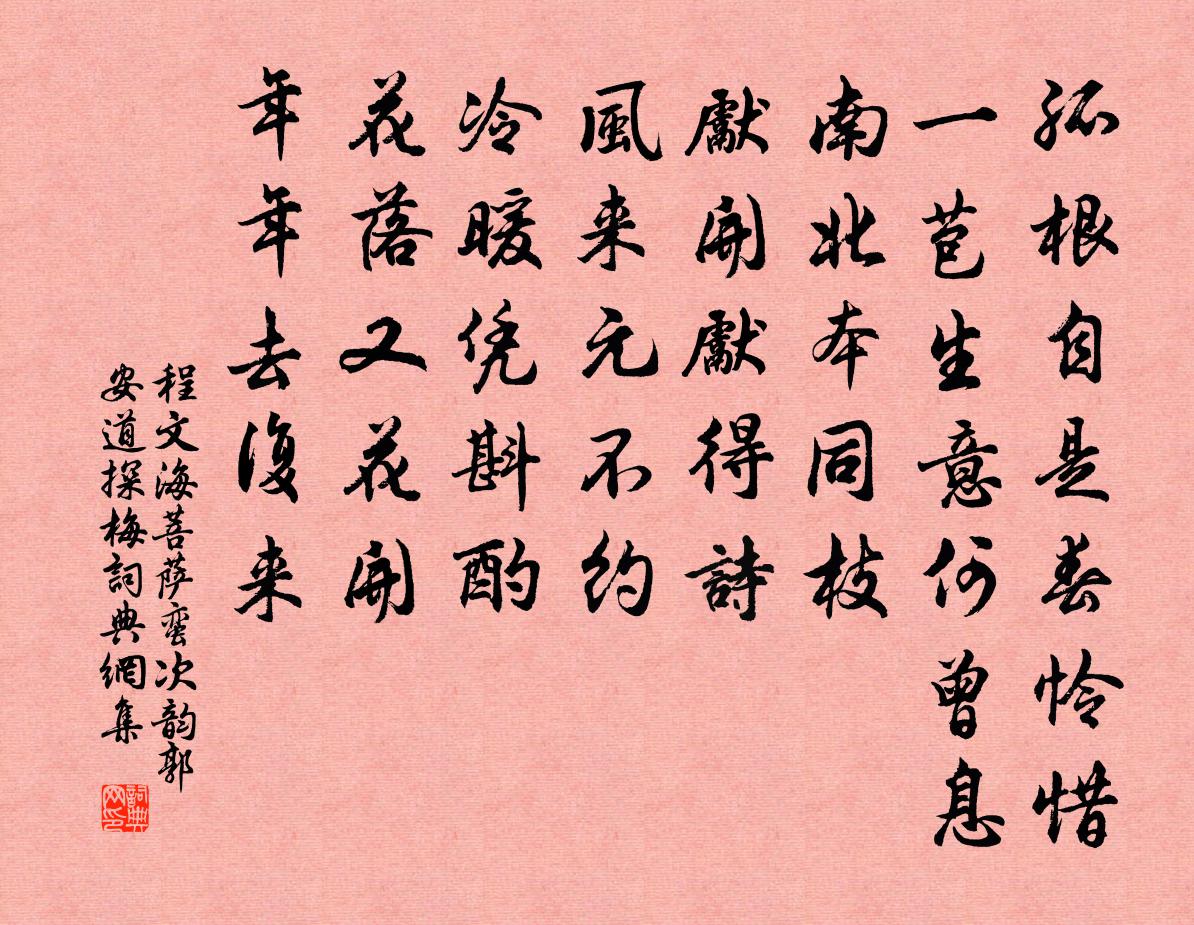 孤根自是春怜惜
一苞生意何曾息
南北本同枝
獻開獻得詩
風来元不約
冷暖凭斟酌
花落又花開
年年去復来
程文海菩萨蛮次韵郭
安道探梅詞典網集
詞典网印